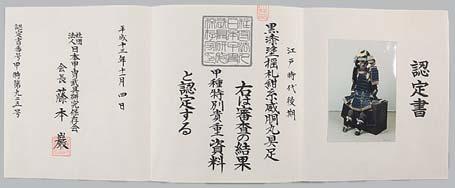 認定書
江戸時代後期
黒漆塗揺札紺糸威胴丸具足
右は審査の結果
甲種特別貴重資料
と認定する
平成十三年十一月四日
社団法人日本甲冑武具研究保存会
会長 藤本巖
認定書番号甲特第九二五号